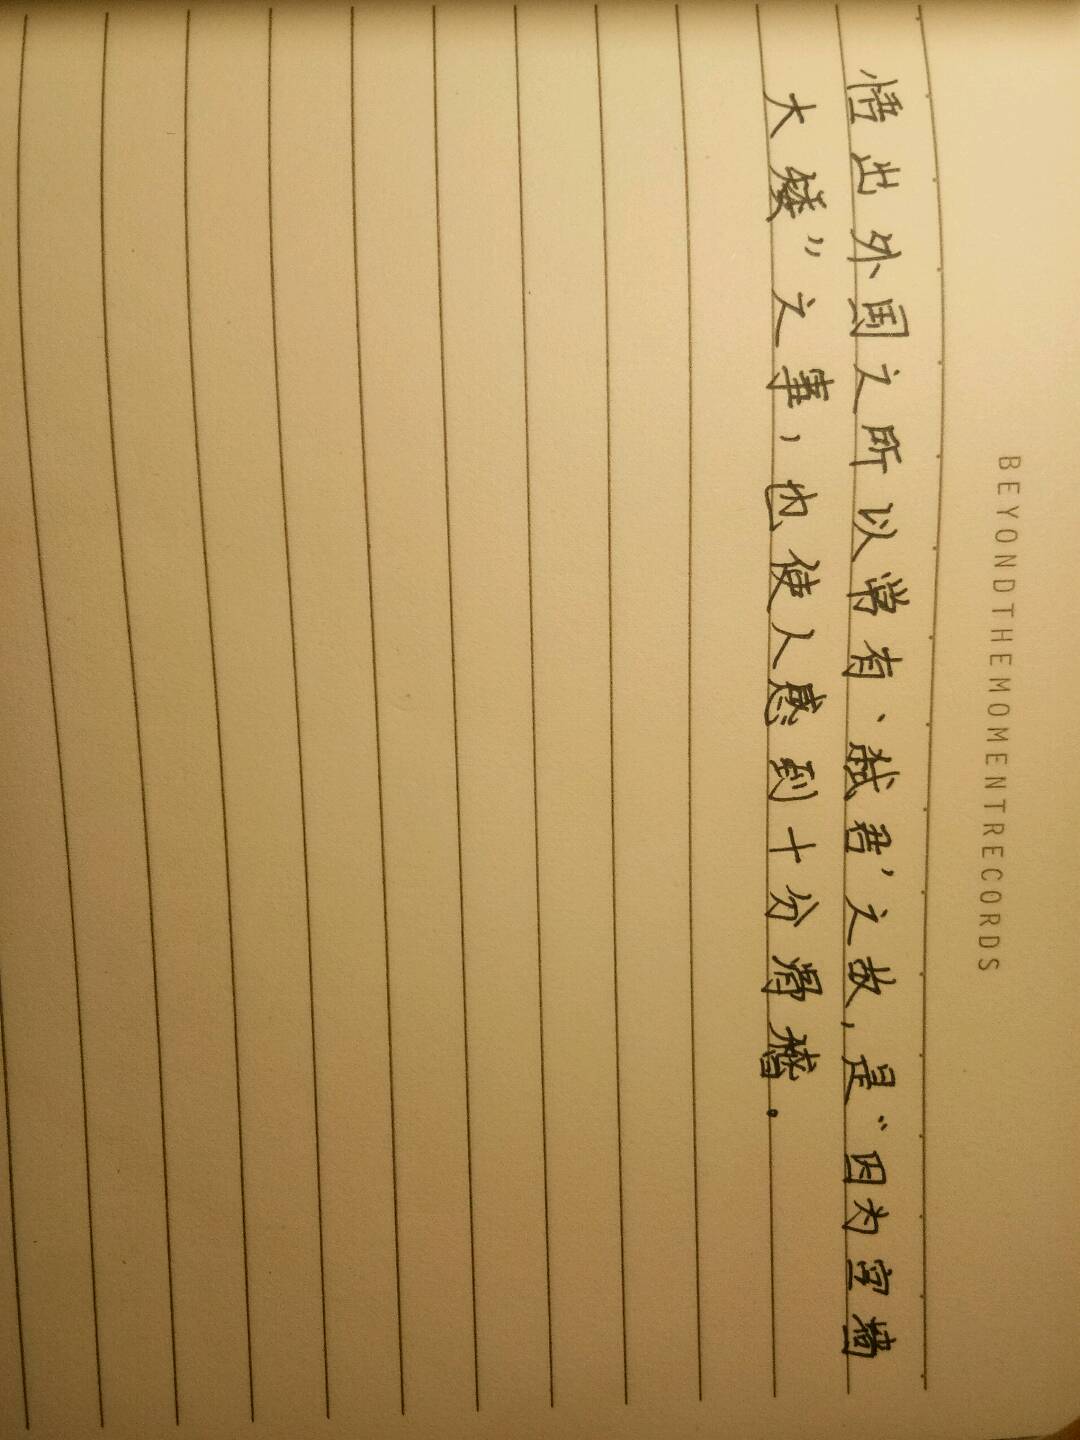 BEYONDTHEMOMENTRECORDS
悟出外国之所以常有‘弑君’之故，是“因为宫墙
大矮”之事，也使人感到十分滑稽。